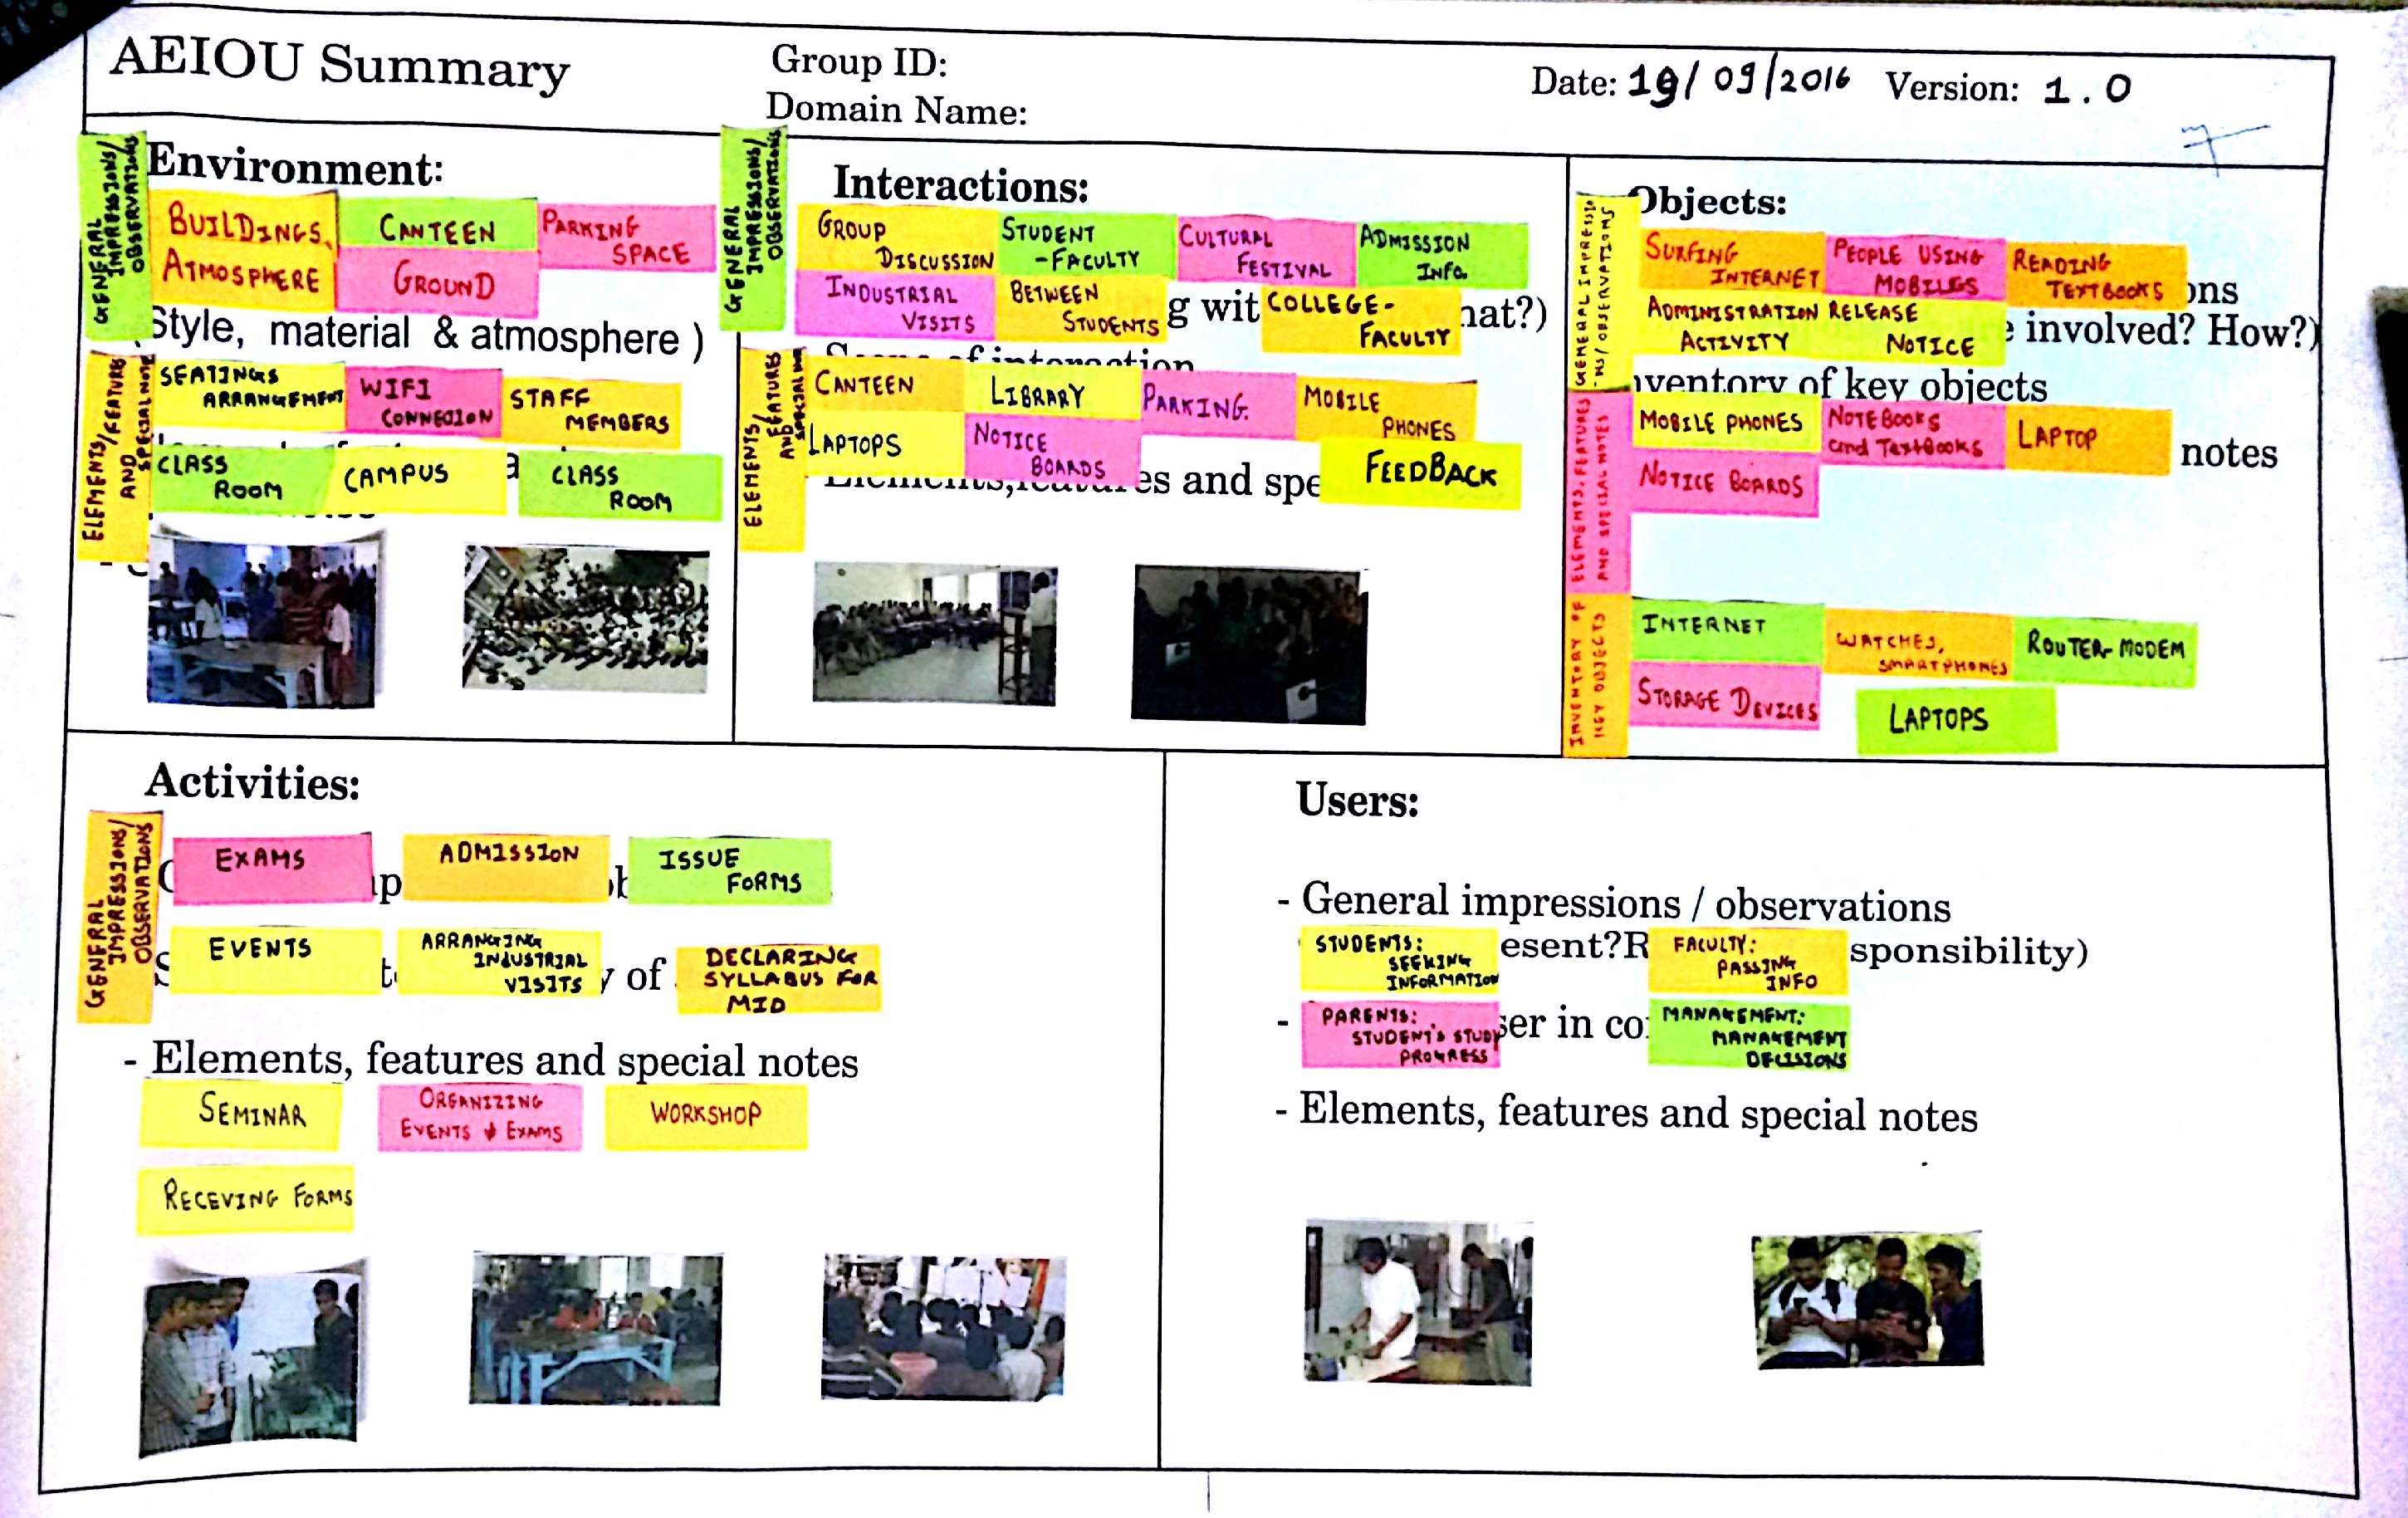 AEIOU Summary
Group ID:
Domain Name:
Date: 19/09/2016 Version: 1.0
GENERAL
IMPRESSIONS/
OBSERVATIONS
Environment:
BUILDINGS,
ATMOSPHERE
CANTEEN
PARKING
SPACE
GROUND
Style, material & atmosphere )
ELEMENTS/FEATURE
AND
SPECIAL NOTE
SEATINGS
ARRANGEMENT
WIFI
CONNECION
STAFF
MEMBERS
CLASS
ROOM
CAMPUS
CLASS
ROOM
GENERAL
IMPRESSIONS/
OBSERVATIONS
Interactions:
GROUP
DISCUSSION
STUDENT
-FACULTY
CULTURAL
FESTIVAL
ADMISSION
INFO.
INDUSTRIAL
VISITS
BETWEEN
STUDENTS
g wit
COLLEGE-
FACULTY
hat?)
of interaction
ELEMENTS/
FEATURES
AND
SPECIAL
CANTEEN
LIBRARY
PARKING.
MOBILE
PHONES
LAPTOPS
NOTICE
BOARDS
FEEDBACK
es and spe
Objects:
SURFING
INTERNET
PEOPLE USING
MOBILES
READING
TEXTBOOKS
ons
ADMINISTRATION
ACTIVITY
RELEASE
NOTICE
e involved? How?)
nventory of key objects
ELEMENTS, FEATURES
AND SPECIAL NOTES
MOBILE PHONES
NOTEBOOKS
and TextBooks
LAPTOP
notes
NOTICE BOARDS
INVENTORY OF
KEY OBJECTS
INTERNET
WATCHES,
SMARTPHONES
ROUTER-MODEM
STORAGE DEVICES
LAPTOPS
Activities:
GENERAL
IMPRESSIONS/
OBSERVATIONS
EXAMS
ADMISSION
ISSUE
FORMS
EVENTS
ARRANGING
INDUSTRIAL
VISITS
y of
DECLARING
SYLLABUS FOR
MID
- Elements, features and special notes
SEMINAR
ORGANIZING
EVENTS & EXAMS
WORKSHOP
RECEVING FORMS
Users:
- General impressions / observations
STUDENTS:
SEEKING
INFORMATION
esent?R
FACULTY:
PASSING
INFO
sponsibility)
- PARENTS:
STUDENT'S STUDY
PROGRESS
ser in co
MANAGEMENT:
MANAGEMENT
DECISIONS
- Elements, features and special notes